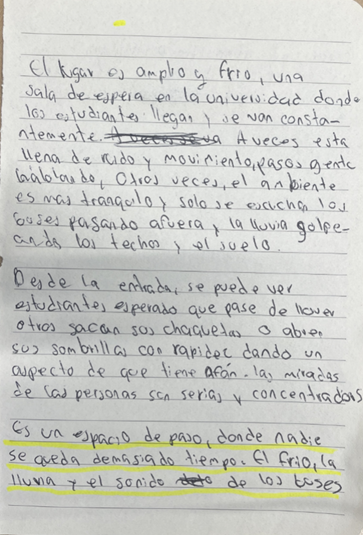 El lugar es amplio y frio, una
sala de espera en la universidad donde
los estudiantes llegan y se van consta-
ntemente. A veces esta
llena de ruido y movimiento, pasos gente
hablando, Otras veces, el ambiente
es mas tranquilo y solo se escucha los
buses pasando afuera y la lluvia golpe-
ando los techos y el suelo.
Desde la entrada, se puede ver
estudiantes esperado que pase de llover
otros sacan sus chaquetas o abren
sus sombrillas con rapidez dando un
aspecto de que tiene afán. las miradas
de las personas son serias y concentradas
Es un espacio de paso, donde nadie
se queda demasiado tiempo. El frio, la
lluvia y el sonido de los buses